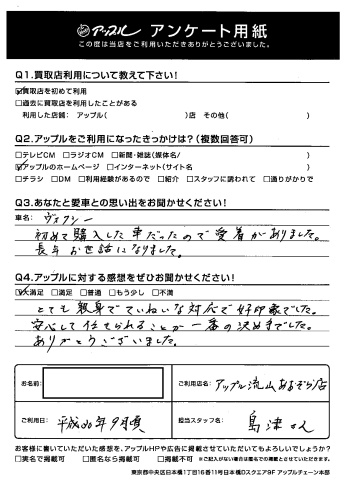 アップル アンケート用紙
この度は当店をご利用いただきありがとうございました。
Q1.買取店利用について教えて下さい!
☑買取店を初めて利用
□過去に買取店を利用したことがある
利用した店舗:アップル( )店 その他( )
Q2.アップルをご利用になったきっかけは?(複数回答可)
□テレビCM □ラジオCM □新聞・雑誌(媒体名/ )
☑アップルのホームページ □インターネット(サイト名 )
□チラシ □DM □利用経験があるので □紹介 □スタッフに誘われて □通りがかりで
Q3.あなたと愛車との思い出をお聞かせください!
車名: ヴォクシー
初めて購入した車だったので愛着がありました。
長年お世話になりました。
Q4.アップルに対する感想をぜひお聞かせください!
☑大満足 □満足 □普通 □もう少し □不満
とても親身でていねいな対応で好印象でした。
安心して任せられることが一番の決めてでした。
ありがとうございました。
お名前:
ご利用店名: アップル流山おおぞら店
ご利用日: 平成30年9月頃
担当スタッフ名: 島津さん
お客様に書いていただいた感想を、アップルHPや広告に掲載させていただいてもよろしいでしょうか?
□実名で掲載可 □匿名なら掲載可 □掲載不可 ※ご記入がない場合は匿名での掲載とさせていただきます。
東京都中央区日本橋1丁目16番11号日本橋Dスクエア9F アップルチェーン本部